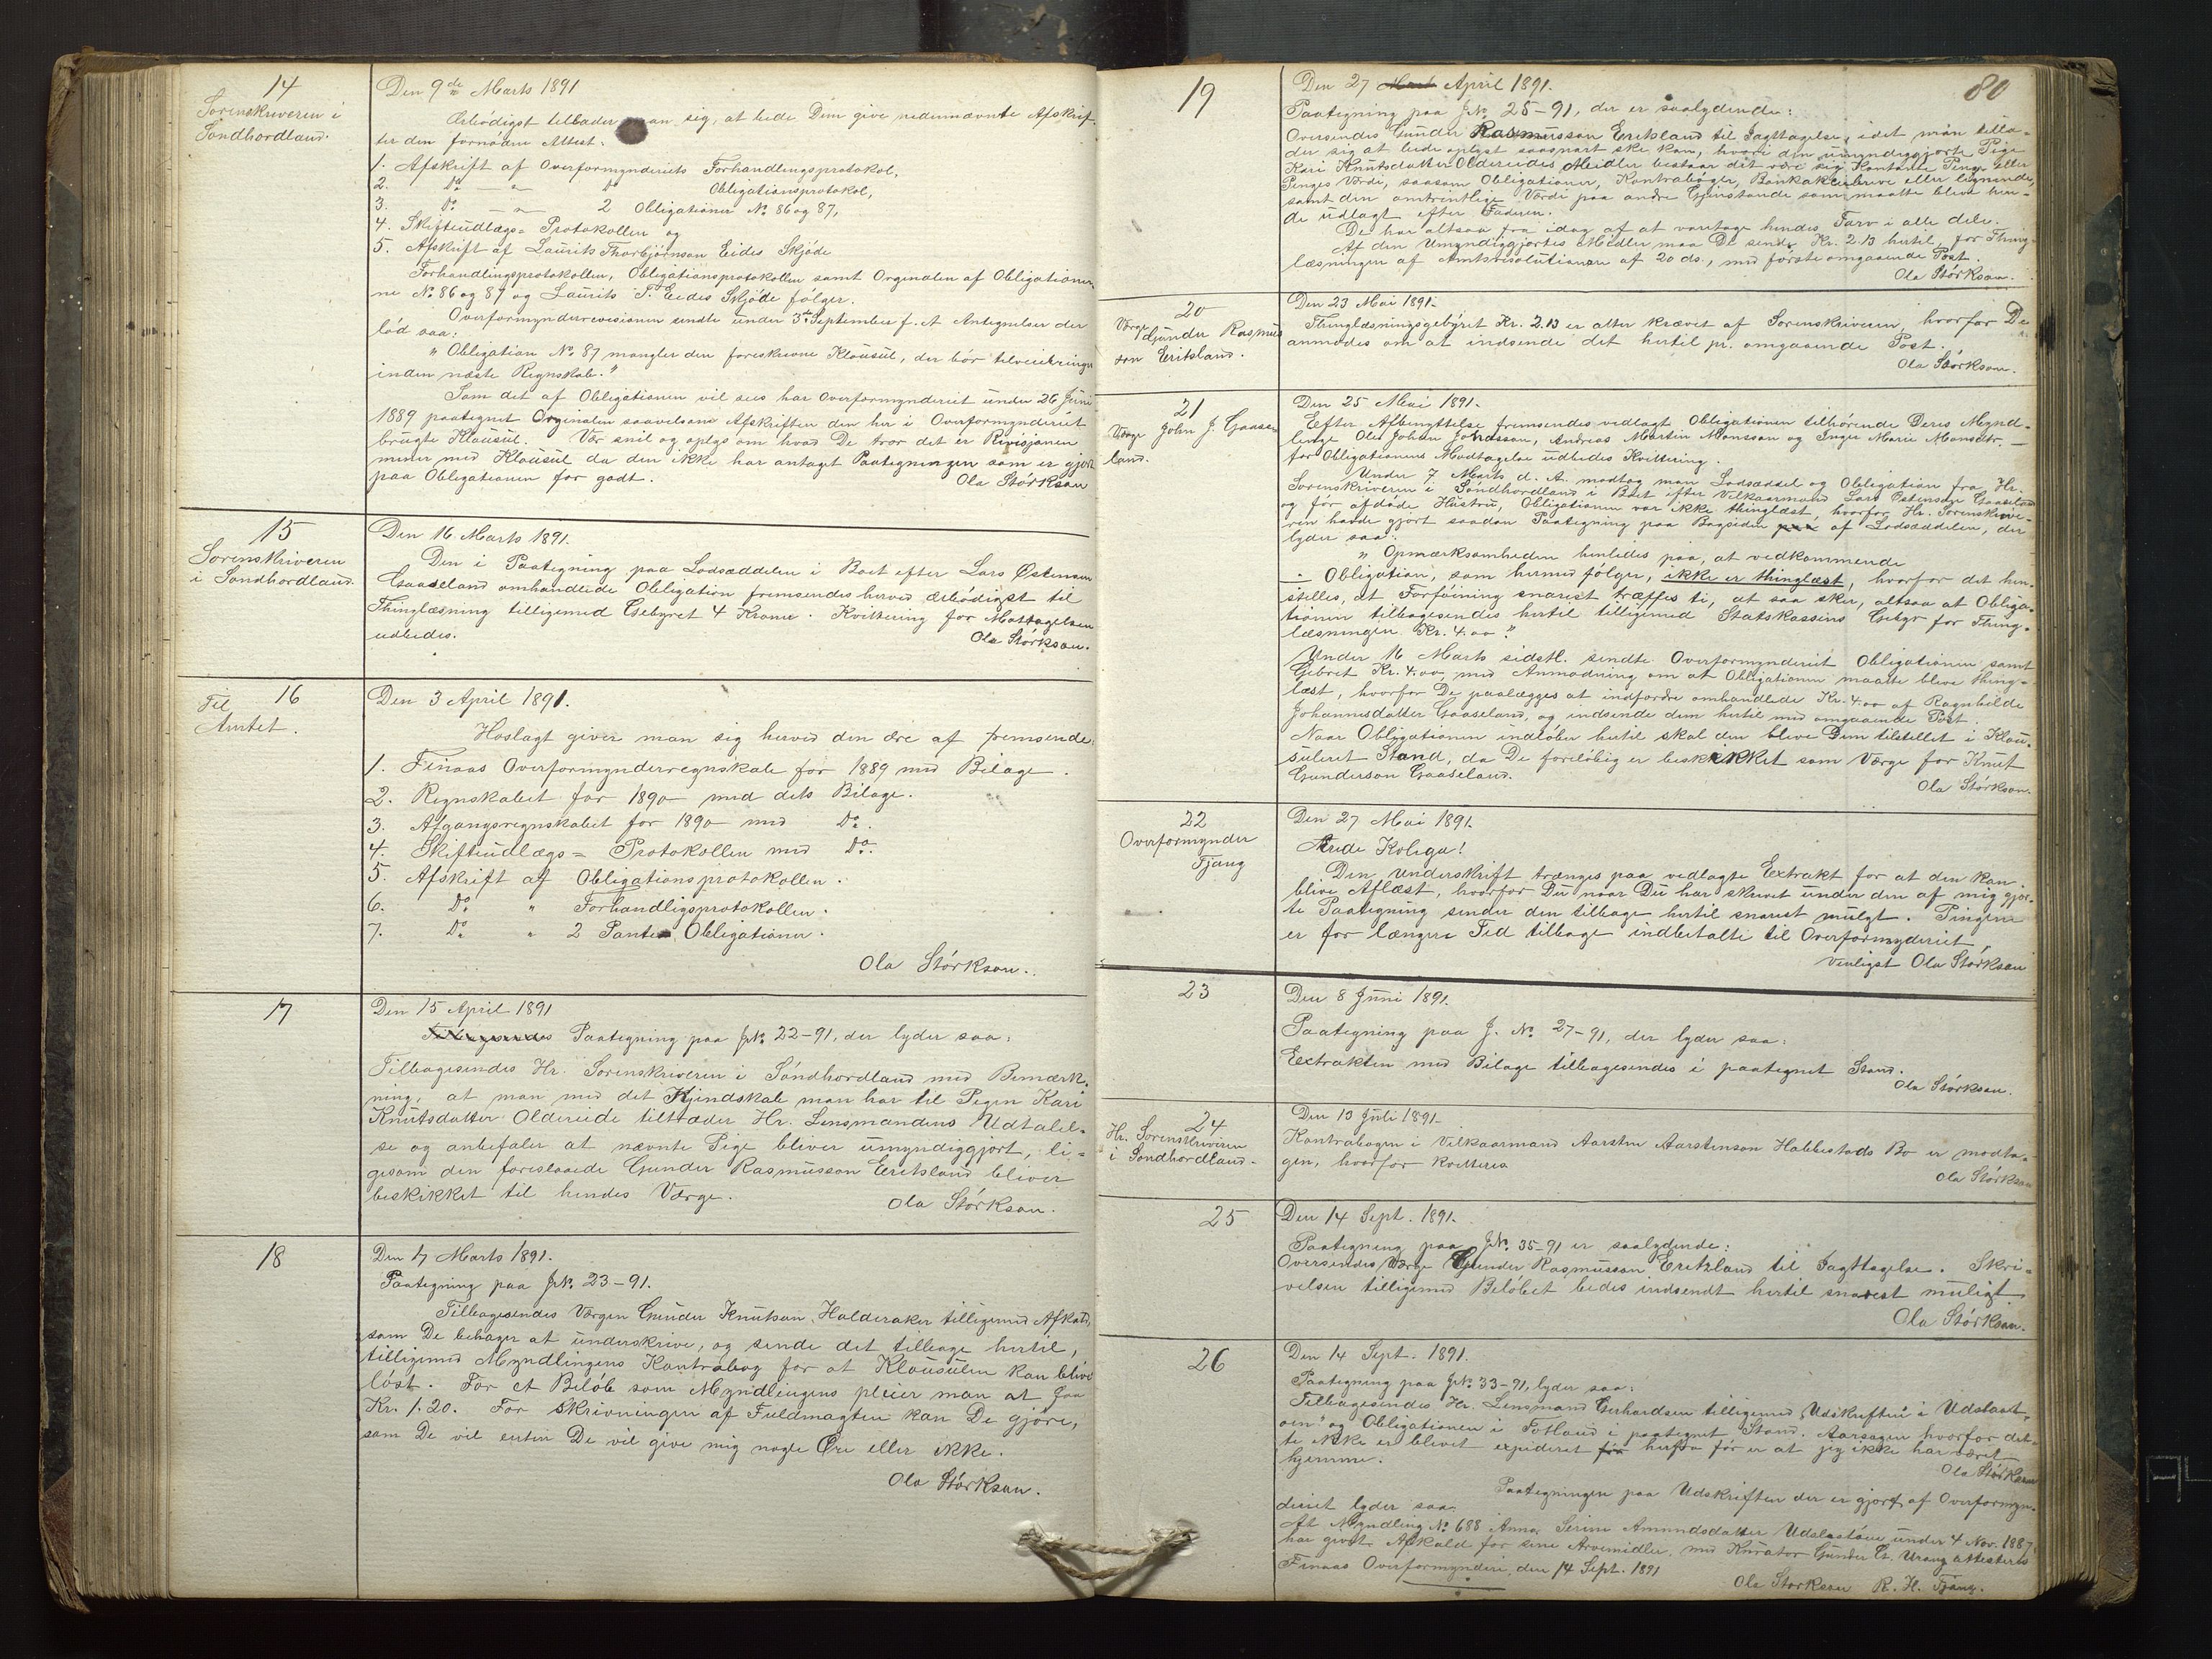 14
Sorenskriveren i
Söndhordland.
Den 9de Marts 1891
Ærbödigst tillader man sig, at bede Dem give nedennævnte Afskrif-
ter den fornödne Attest:
1. Afskrift af Overformynderiets Forhandlingsprotokol,
2. Do — „ — Do Obligationsprotokol,
3. Do — „ — 2 Obligationer No. 86 og 87,
4. Skifteudlægs= Protokollen og
5. Afskrift af Laurits Thorbjörnson Eides Skjöde
Forhandlingsprotokollen, Obligationsprotokollen samt Orginalen af Obligationer-
ne No. 86 og 87 og Laurits T. Eides Skjöde fölger.
Overformynderrevisionen sendte under 3die September f. A Antegnelser der
löd saa:
„ Obligation No. 87 mangler den foreskrevne Klausul, der bör tilveiebringes
inden næste Regnskab."
Som det af Obligationen vil sees har Overformynderiet under 26 Juni
1889 paategnet Orginalen saavelsom Afskriften den her i Overformynderiet
brugte Klausul. Vær snil og oplys om hvad De tror det er Revisjonen
mener med Klausul da den ikke har antaget Paategningen som er gjort
paa Obligationen for godt.
Ola Störkson
15
Sorenskriveren
i Söndhordland.
Den 16 Marts 1891.
Den i Paategning paa Lodsæddelen i Boet efter Lars Østenson
Gaaseland omhandlede Obligation fremsendes herved ærbödigst til
Thinglæsning tilligemed Gebyret 4 Kroner. Kvittering for Mottagelsen
udbedes.
Ola Störkson.
16
Til
Amtet.
Den 3 April 1891.
Hoslagt giver man sig herved den ære af fremsende:
1. Finaas Overformynderregnskab for 1889 med Bilage.
2. Regnskabet for 1890 med dets Bilage.
3. Afgangsregnskabet for 1890 med Do.
4. Skifteudlægs= Protokollen med Do.
5. Afskrift af Obligationsprotokollen.
6. Do „ Forhandligsprotokollen.
7. Do „ 2 Pante Obligationer.
Ola Störkson.
17
Den 15 April 1891
Tilbagesendes Paategning paa JNo. 22-91, der lyder saa:
Tilbagesendes Hr. Sorenskriveren i Söndhordland med Bemærk-
ning, at man med det Kjendskab man har til Pigen Kari
Knutsdatter Oldereide tiltræder Hr. Lensmandens Udtalel-
se og anbefaler at nævnte Pige bliver umyndiggjort, li-
gesom den foreslaaede Gunder Rasmusson Eritsland bliver
beskikket til hendes Værge.
Ola Störkson.
18
Den 17 Marts 1891.
Paategning paa JNo. 23-91.
Tilbagesendes Værgen Gunder Knutson Halderaker tilligemed Afkald,
som De behager at underskrive, og sende det tilbage hertil,
tilligemed Myndlingens Kontrabog for at Klausulen kan blive
löst. For et Belöb som Myndlingens pleier man at faa
Kr. 1.20. For Skrivningen af Fuldmagten kan De gjöre,
som De vil enten De vil give mig nogle Öre eller ikke.
Ola Störkson.
80
19
Den 27 April 1891.
Paategning paa JNo. 25-91, der er saalydende:
Oversendes Gunder Rasmusson Eritsland til Iagttagelse, idet man tilla-
der sig at bede oplyst saasnart ske kan, hvori den umyndiggjorte Pige
Kari Knutsdatter Oldereides Midler bestaar det være sig Kontante Penge eller
Penges Værdi, saasom Obligationer, Kontraböger, Bankaktiebreve eller lignende,
samt den omtrentlige Værdi paa andre Gjenstande som maatte blive hen-
de udlagt efter Faderen.
De har altsaa fra idag af at varetage hendes Tarv i alle dele.
Af den Umyndiggjortes Midler maa De sende Kr. 2.13 hertil for Thing-
læsningen af Amtsresolutionen af 20 ds., med förste omgaaende Post.
Ola Störkson.
20
Værge
Gunder Rasmus
son Eritsland.
Den 23 Mai 1891.
Thinglæsningsgebyret Kr. 2.13 er atter krævet af Sorenskriveren, hvorfor De
anmodes om at indsende det hertil pr. omgaaende Post.
Ola Störkson.
21
Værge John J. Gaase
land.
Den 25 Mai 1891.
Efter Afbenyttelse fremsendes vedlagt Obligationen tilhörende Deres Mynd-
linge Ole Johan Johnsson, Andreas Martin Monsson og Inger Marie Monsdtr. —
for Obligationens Modtagelse udbedes Kvittering.
Under 7 Marts d. A. modtog man Lodsæddel og Obligation fra Hr.
Sorenskriveren i Söndhordland i Boet efter Vilkaarmand Lars Östenson Gaaseland
og för afdöde Hustru, Obligationen var ikke thinglæst, hvorfor Hr. Sorenskrive-
ren havde gjort saadan Paategning paa Bagsiden paa af Lodsæddelen, der
lyder saa:
„ Opmærksomheden henledes paa, at vedkommende
— Obligation, som hermed fölger, ikke er thinglæst, hvorfor det hen-
stelles, at Forföining snarest træffes ti, at saa sker, altsaa at Obliga-
tionen tilbagesendes hertil tilligemed Statskassens Gebyr for Thing-
læsningen Kr. 4.00."
Under 16 Marts sidstl. sendte Overformynderiet Obligationen samt
Gebret Kr. 4.00, med Anmodning om at Obligationen maatte blive thing-
læst, hvorfor De paalægges at indfordre omhandlede Kr. 4.00 af Ragnhilde
Johannesdatter Gaaseland, og indsende dem hertil med omgaaende Post.
Naar Obligationen indlöber hertil skal den blive Dem tilstillet i Klau-
suleret Stand, da De forelöbig er beskikket som Værge for Knut
Gunderson Gaaseland.
Ola Störkson.
22
Overformynder
Tjang
Den 27 Mai 1891.
Ærede Kolega!
Din underskrift trænges paa vedlagte Extrakt for at den kan
blive Aflæst, hvorfor Du naar Du har skrevet under den af mig gjor-
te Paategning sender den tilbage hertil snarest mulgt. Pingene
er for længere Tid tilbage indbetalte til Overformyderiet,
Venligst Ola Störkson
23
Den 8 Juni 1891.
Paategning paa J. No. 27-91, der lyder saa:
Extrakten med Bilage tilbagesendes i paategnet Stand.
Ola Störkson.
24
Hr. Sorenskriveren
i Söndhordland.
Den 13 Juli 1891.
Kontrabogen i Vilkaarmand Aarsten Aarstenson Habbestads Bo er modta-
gen, hvorfor kvitteres
Ola Störkson
25
Den 14 Sept. 1891.
Paategning paa JNo. 35-91 er saalydende:
Oversendes Værge Gunder Rasmusson Eritzland til Iagttagelse. Skri-
velsen tilligemed Belöbet bedes indsendt hertil snarest muligt
Ola Störkson.
26
Den 14 Sept. 1891.
Paategning paa JNo. 33-91, lyder saa:
Tilbagesendes Hr. Lensmand Gerhardsen tilligemed „Udskriften i Udslaat-
öen" og Obligationen i Totland i paategnet Stand. Aarsagen hvorfor det-
te ikke er blevet expideret för herfra för er at jeg ikke har været
hjemme.
Ola Störkson
Paategningen paa Udskriften der er gjort af Overformyn-
deriet lyder saa:
At Myndling No. 688 Anna Serine Amundsdatter Udslaatöen under 4 Nov. 1887
har givet Afkald for sine Arvemidler, med Kurator Gunder G. Urang attesteres
Finaas Overformynderi, den 14 Sept. 1891
Ola Störkson R. H. Tjang.